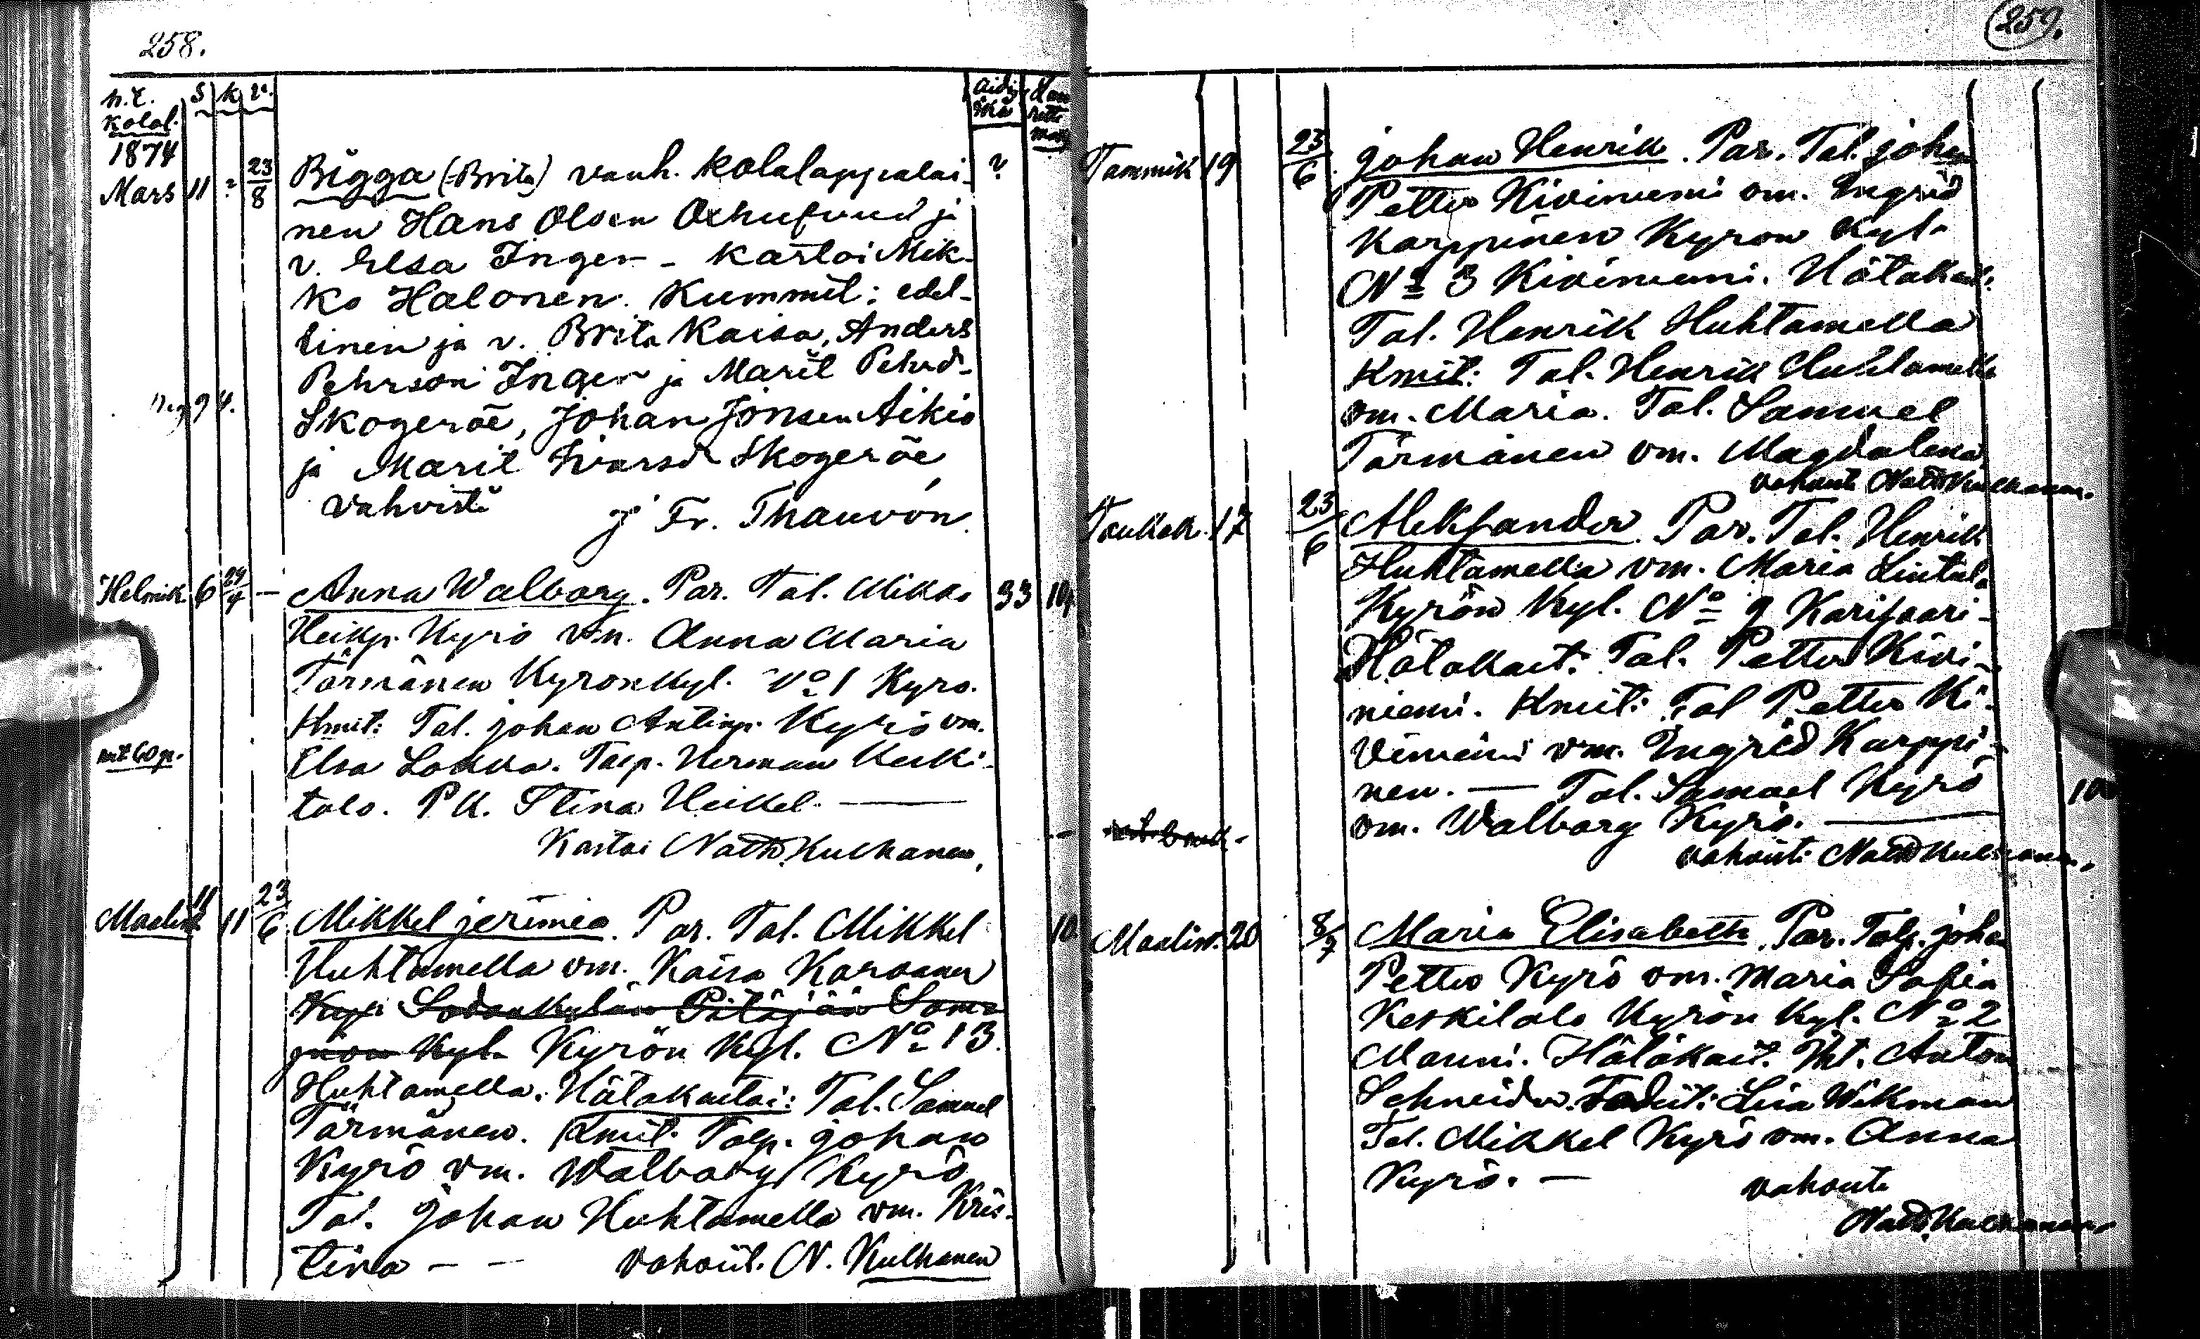 258.
S k v.
Kolal.
1874
Mars 11 ? 23/8 Bigga (=Brita) vanh. Kolalappalai- ?
nen Hans Olsen ja
v. Elsa Inger - kastoi Mik-
ko Halonen. Kummit: edel-
linen ja v. Brita Kaisa, Anders
Pehrson Inger ja Marit Pehrd.
94.
Skogeröe, Johan Jonsen Aikio
ja Marit Ivarsd Skogeröe,
vahvisti
Fr. Thauvón.
Helmik. 6 24/4 — Anna Walborg. Par. Tal. Mikko 33 10
Heikp. Kyrö vm. Anna Maria
Törmänen Kyrönkyl. No 1 Kyrö.
Kmit: Tal. Johan Antinp. Kyrö vm.
Elsa Lokka. Talp. Herman Keski-
talo. P.K. Stina Heikel. —
Kastoi Nath. Kulkanen.
Maalisk. 11 11 23/6 Mikkel Jerimia. Par. Tal. Mikkel 10
Huhtamella vm. Kaisa Karvanen
Kyp. Sodankylän Pitäjän
Kyl. Kyrön Kyl. No 13.
Huhtamella. Hätäkastoi: Tal. Samuel
Törmänen. Kmit: Talp. Johan
Kyrö vm. Walborg Kyrö
Tal. Johan Huhtamella vm. Kris-
tina — — vahvist. N. Kulkanen
259.
Tammik 19 23/6 Johan Henrik. Par. Tal. Johan
Petter Kiviniemi vm. Ingrid
Karppinen Kyrön Kyl.
No 3 Kiviniemi. Hätäkast:
Tal. Henrik Huhtamella
Kmit: Tal. Henrik Huhtamella
vm. Maria. Tal. Samuel
Törmänen vm. Magdalena
vahvisti Nath Kulkanen.
Toukok. 17 23/6 Aleksander. Par. Tal. Henrik
Huhtamella vm. Maria Lintula
Kyrön Kyl. No 9
Hätäkast: Tal. Petter Kivi-
niemi. Kmit: Tal Petter Ki-
viniemi vm. Ingrid Karppi-
nen. — Tal. Samuel Kyrö
vm. Walborg Kyrö. —
vahvisti Nath Kulkanen.
Maalisk. 20 8/7 Maria Elisabeth. Par. Talp. Johan
Petter Kyrö vm. Maria Sofia
Keskitalo Kyrön Kyl. No 2
Manni. Hätäkast. Anton
Schneider. Todist: Lisa Wikman
Tal. Mikkel Kyrö vm. Anna
Kyrö. — vahvisti
Nath. Kulkanen